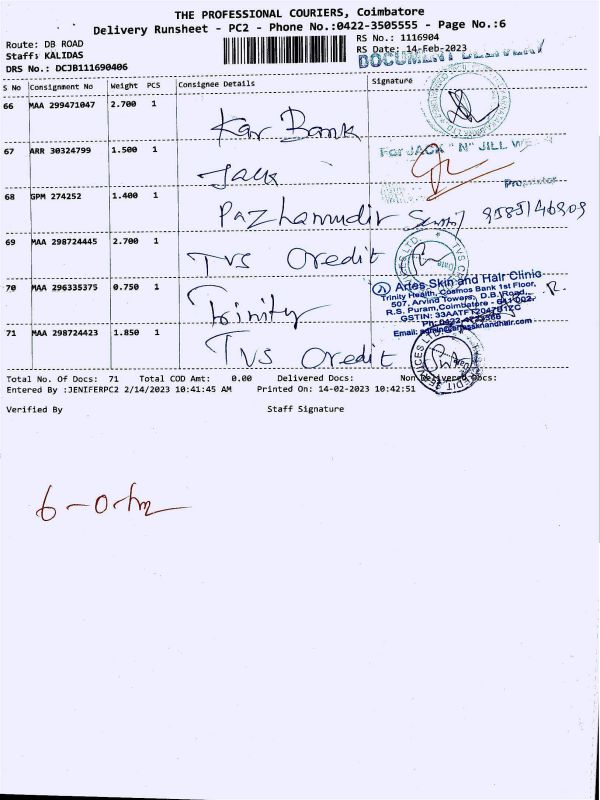 THE PROFESSIONAL COURIERS, Coimbatore
Delivery Runsheet - PC2 - Phone No.:0422-3505555 - Page No.:6
Route: DB ROAD
RS No.: 1116904
Staff: KALIDAS
RS Date: 14-Feb-2023
DRS No.: DCJB111690406
DOCUMENT DELIVERY
S No Consignment No Weight PCS Consignee Details Signature
66 MAA 299471047 2.700 1
Kar Bank
67 ARR 30324799 1.500 1
For JACK "N" JILL
Jack
68 GPM 274252 1.400 1
Proprietor
Pazhamudir
69 MAA 298724445 2.700 1
TVS Credit
70 MAA 296335375 0.750 1
Artes Skin and Hair Clinic
Trinity Health, Cosmos Bank 1st Floor,
507, Arvind Towers, D.B. Road,
R.S. Puram, Coimbatore - 641 002.
GSTIN:
Ph:
Email:
Trinity
71 MAA 298724423 1.850 1
TVS Credit
Total No. Of Docs: 71 Total COD Amt: 0.00 Delivered Docs: Non Delivered Docs:
Entered By :JENIFERPC2 2/14/2023 10:41:45 AM Printed On: 14-02-2023 10:42:51
Verified By Staff Signature